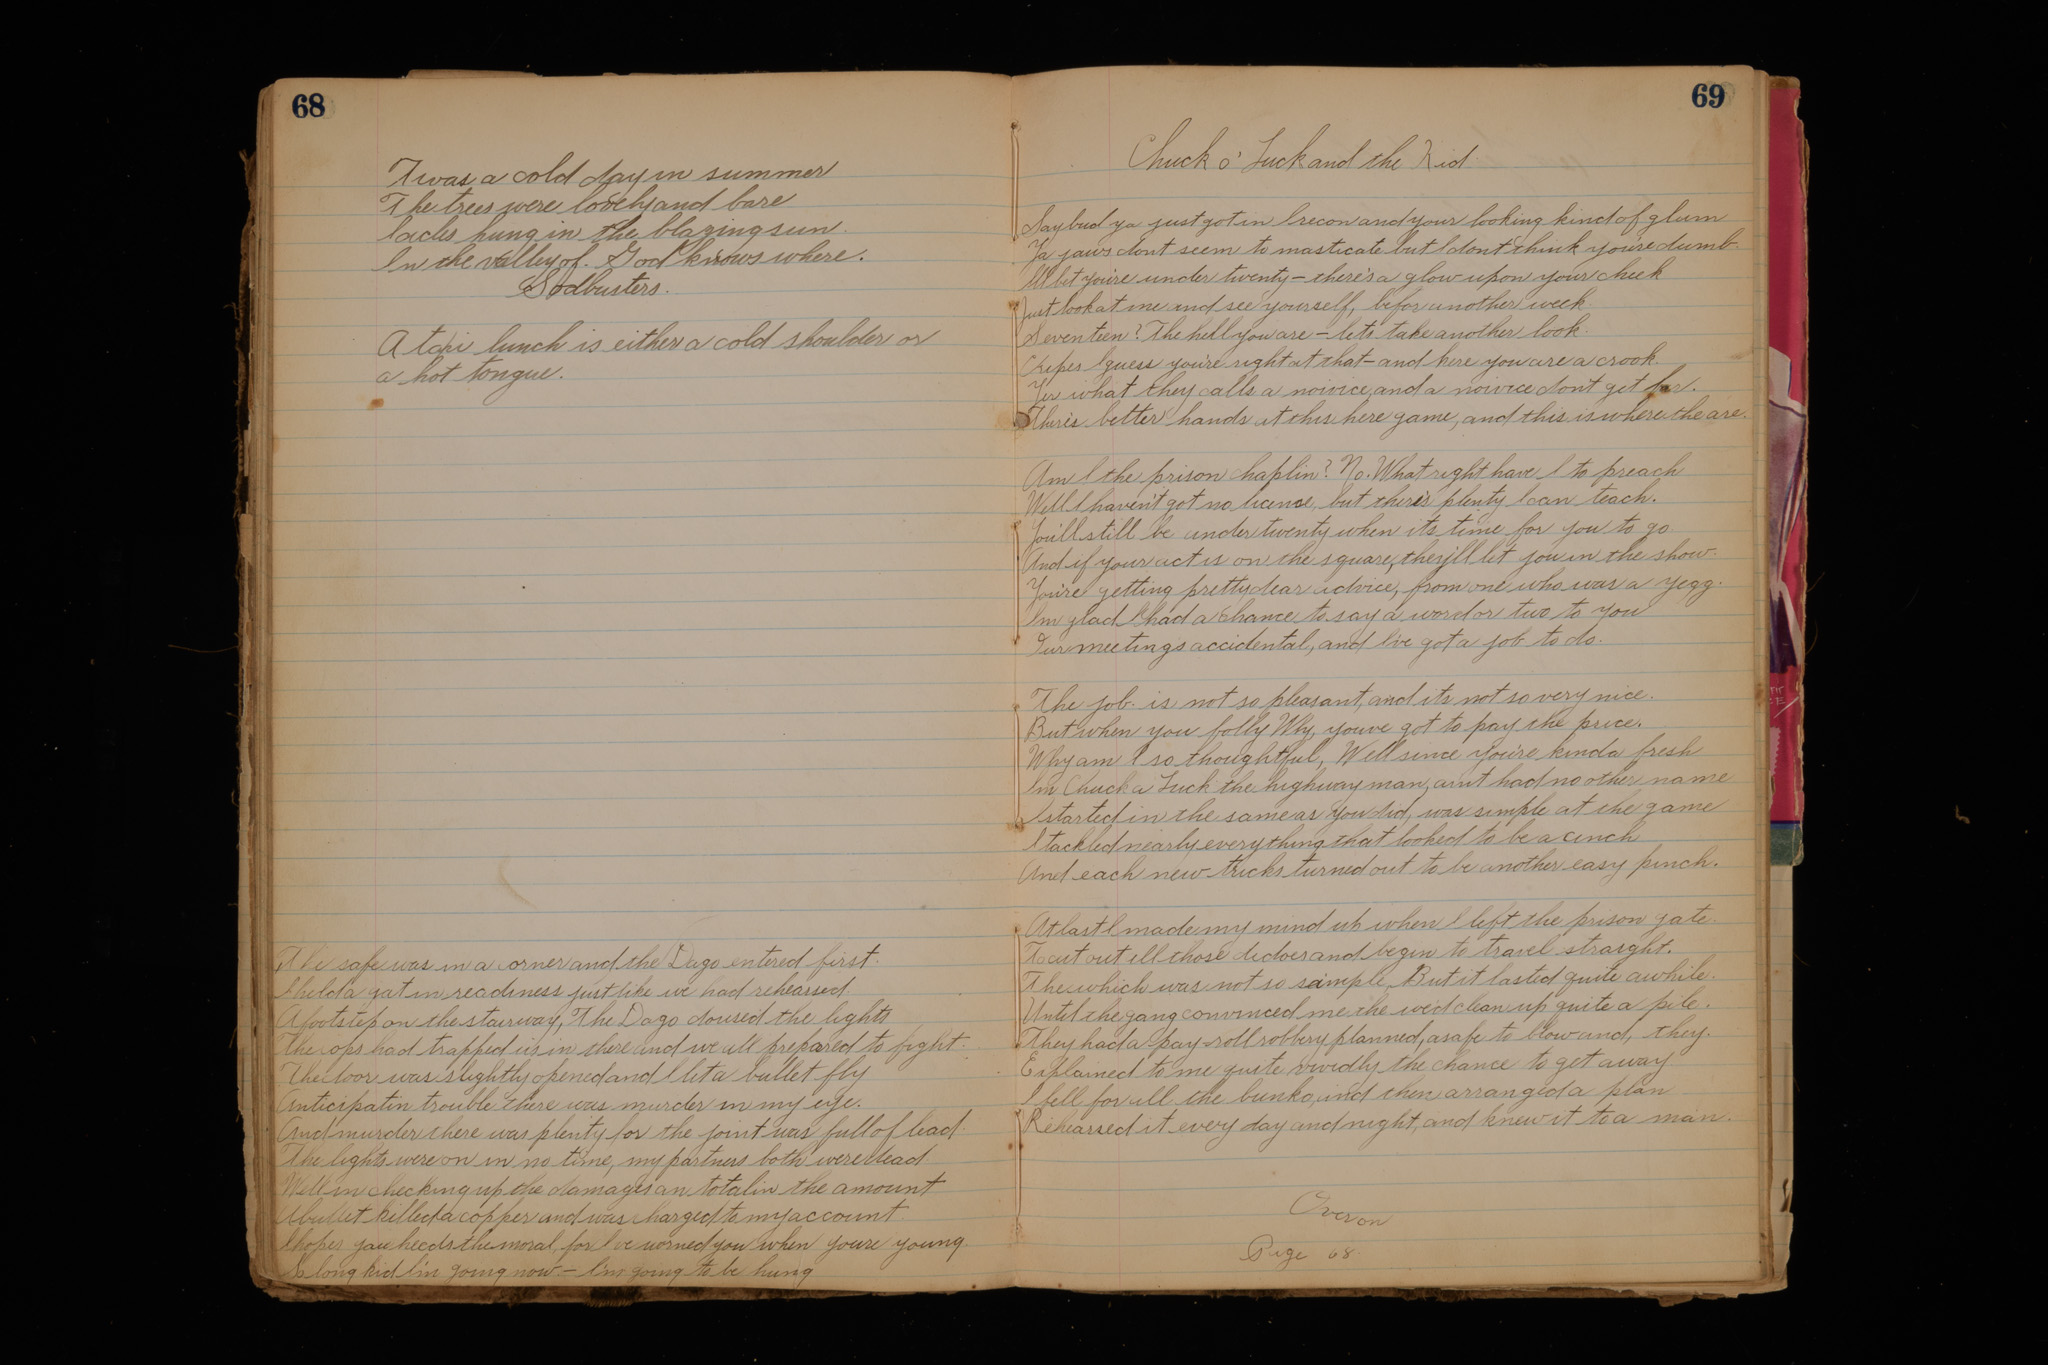 68
Twas a cold day in summer
The trees were lovely and bare
Cacles hung in the blazing sun.
In the valley of. God knows where.
Sodbusters.
A taxi lunch is either a cold shoulder or
a hot tongue.
The safe was in a corner and the Dago entered first.
I held a gat in readiness just like we had rehearsed.
A footstep on the stairway, The Dago doused the lights
The cops had trapped us in there and we all prepared to fight.
The door was slightly opened and I let a bullet fly
Anticipatin trouble there was murder in my eye.
And murder there was plenty for the joint was full of lead.
The lights were on in no time, my partners both were dead
Well in checking up the damages an totalin the amount
A bullet killed a copper and was charged to my account
I hopes you heeds the moral, for I've worned you when youre young.
So long kid I'm going now — I'm going to be hung
69
Chuck o' Luck and the Kid
Say bud ya just got in I recon and your looking kind of glum
Ya jaws dont seem to masticate but I dont think you're dumb.
I'll bet you're under twenty — there's a glow upon your cheek
Just look at me and see yourself, befor another week
Seventeen? The hell you are — lets take another look.
Cripes I guess you're right at that — and here you are a crook.
Yer what they calls a noivice, and a noivice dont get far.
There's better hands at this here game, and this is where the are.
Am I the prison chaplin? No. What right have I to preach
Well I haven't got no licence, but there's plenty I can teach.
You'll still be under twenty when its time for you to go
And if your act is on the square, they'll let you in the show.
You're getting pretty dear advice, from one who was a yegg.
I'm glad I had a chance to say a word or two to you
Our meetings accidental, and I've got a job to do.
The job is not so pleasant, and its not so very nice.
But when you folly Why, youve got to pay the price.
Why am I so thoughtful, Well since you're kinda fresh
I'm Chuck a Luck the highwayman, aint had no other name
I started in the same as you did, was simple at the game
I tackled nearly everything that looked to be a cinch
And each new tricks turned out to be another easy pinch.
At last I made my mind up when I left the prison gate.
To cut out all those didoes and begin to travel straight.
The which was not so simple, But it lasted quite awhile.
Until the gang convinced me the we'd clean up quite a pile.
They had a pay-roll robbery planned, a safe to blow and, they.
Explained to me quite vividly the chance to get away
I fell for all the bunko, and then arranged a plan
Rehearsed it every day and night, and knew it to a man.
Over on
Page 68.